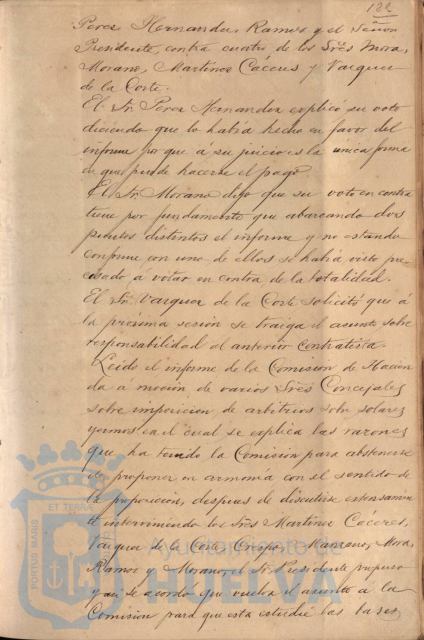 122
Perez Hernandez, Ramos y el Señor
Presidente, contra cuatro de los Sres Mora,
Morano, Martinez Cáceres y Vazquez
de la Corte.
El Sr. Perez Hernandez esplicó su voto
diciendo que lo habia hecho en favor del
informe por que á su juicio es la unica forma
en que puede hacerse el pago.
El Sr. Morano dijo que su voto en contra
tiene por fundamento que abarcando dos
puntos distintos el informe y no estando
conforme con uno de ellos se habia visto pre-
cisado á votar en contra de la totalidad.
El Sr. Vazquez de la Corte solicitó que á
la proxima sesión se traiga el asunto sobre
responsabilidad al anterior contratista.
Leido el informe de la Comision de Hacien
da á moción de varios Sres Concejales
sobre imposicion de arbitrios sobre solares
yermos en el cual se esplica las razones
que ha tenido la Comisión para abstenerse
de proponer en armonia con el sentido de
la proposicion, despues de discutirse estensamente
interviniendo los Sres Martinez Cáceres,
Vazquez de la Corte, Crespo, Moreno, Mora,
Ramos y Morano, el Sr. Presidente propuso
y asi se acordo que vuelva el asunto á la
Comision para que esta estudie las bases
ET TERRAE
PORTUS MARIS
CUSTODIA
Ayuntamiento de
HUELVA